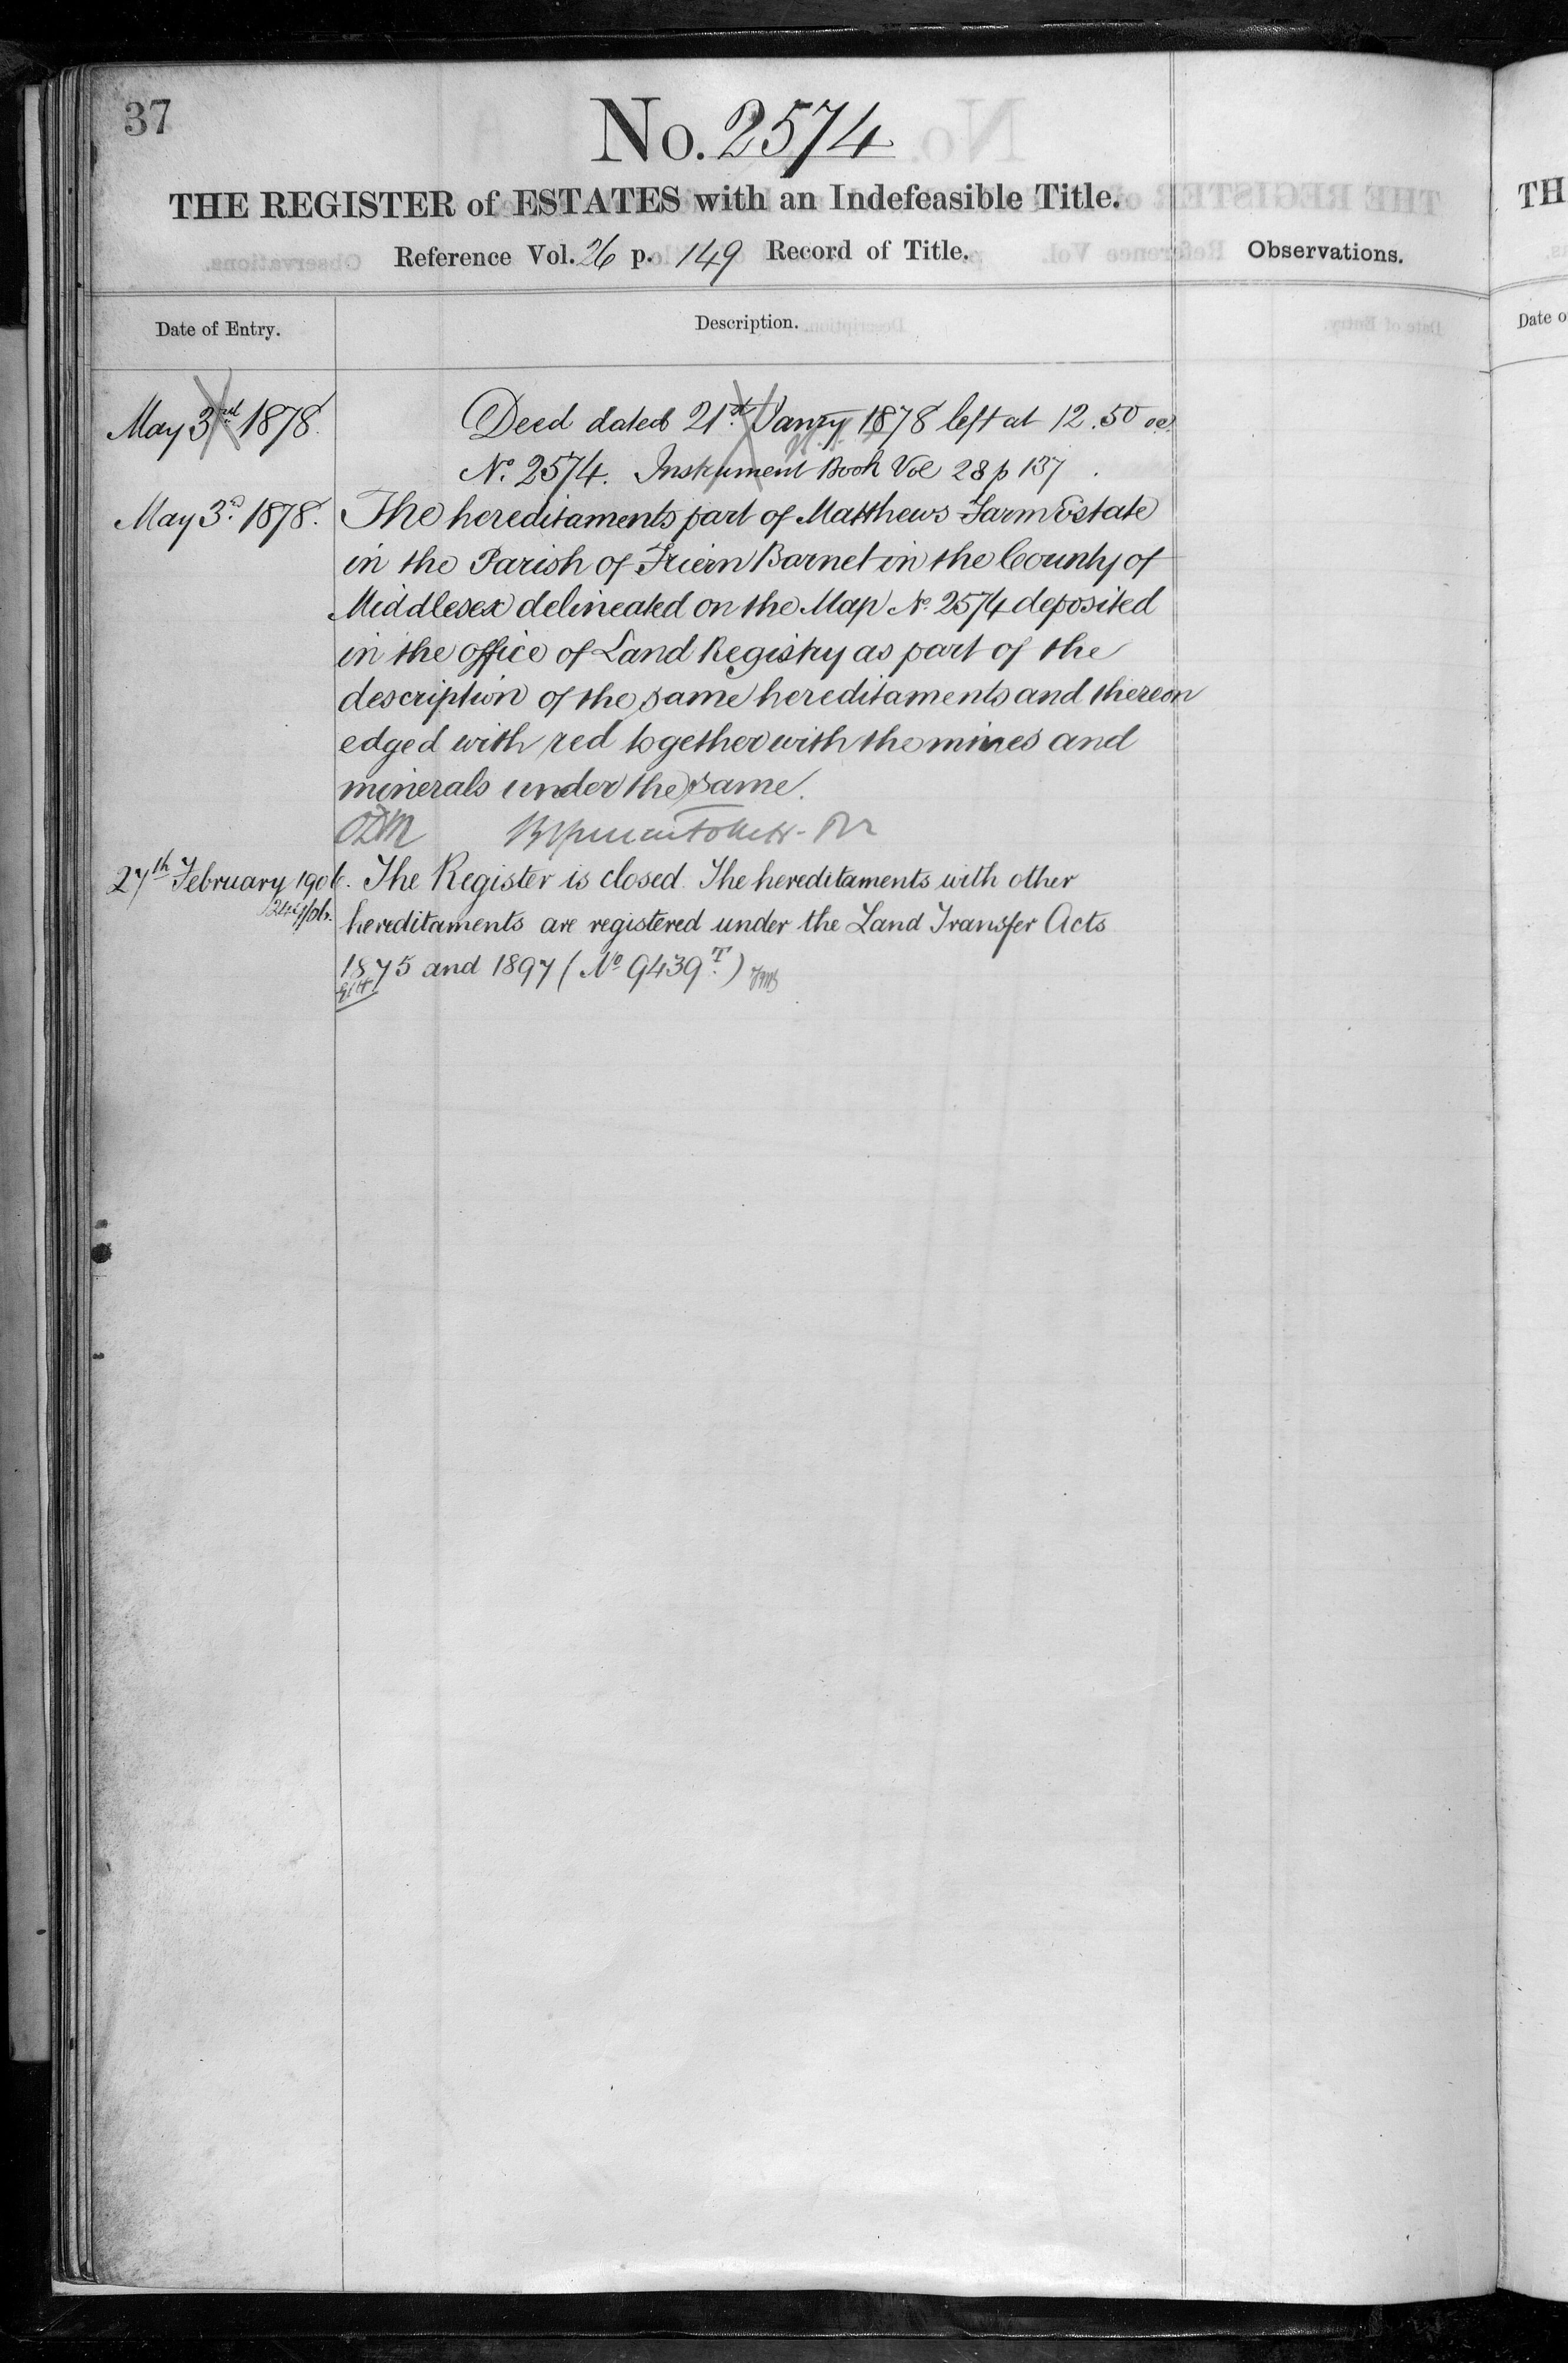 37
No. 2574
THE REGISTER of ESTATES with an Indefeasible Title.
Reference Vol. 26 p. 149 Record of Title.
Observations.
Date of Entry.
Description.
May 3rd 1878.
Deed dated 21st Janry 1878 left at 12.50
No. 2574. Instrument Book Vol 28 p 137.
May 3d. 1878.
The hereditaments part of Matthews Farm Estate
in the Parish of Friern Barnet in the County of
Middlesex delineated on the Map No. 2574 deposited
in the office of Land Registry as part of the
description of the same hereditaments and thereon
edged with red together with the mines and
minerals under the same.
27th February 1906.
The Register is closed. The hereditaments with other
hereditaments are registered under the Land Transfer Acts
1875 and 1897 (No 9439T.)
TH
Date o